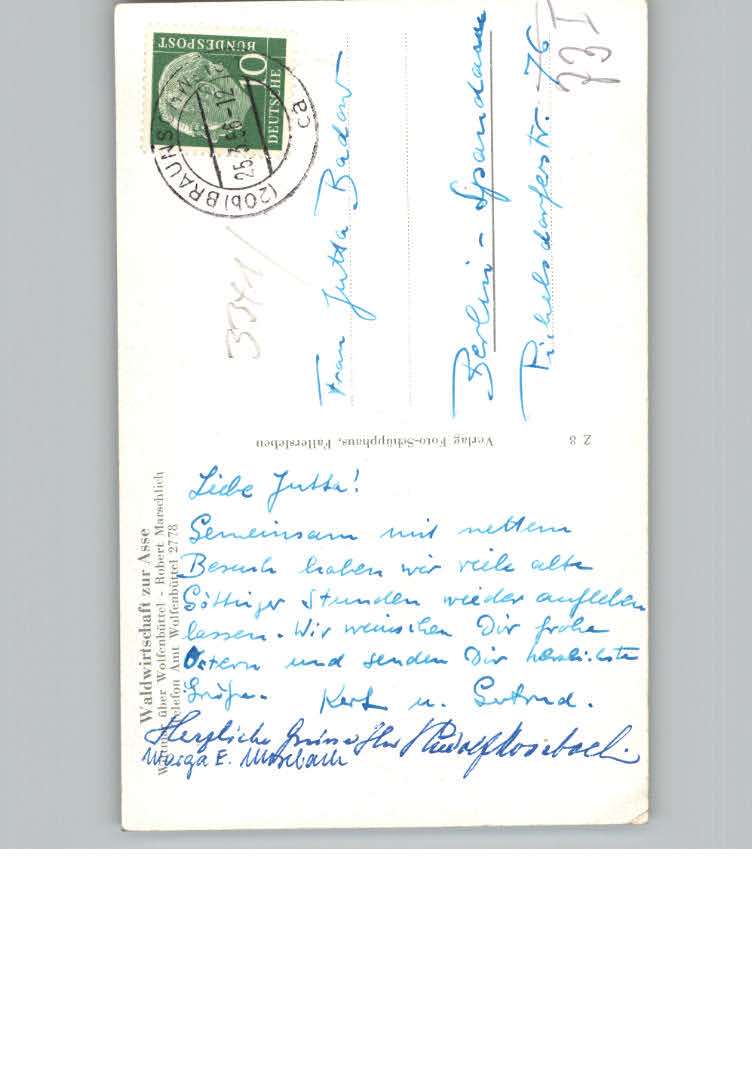 Waldwirtschaft zur Asse
über Wolfenbüttel - Robert Marschlich
Telefon Amt Wolfenbüttel 2778
Liebe Jutta!
Gemeinsam mit nettem
Besuch haben wir viele alte
Göttinger Stunden wieder aufleben
lassen. Wir wünschen Dir frohe
Ostern und senden Dir herzlichste
Grüße. Kurt u. Gertrud.
Herzliche Grüsse Ihr Rudolf Mosebach
Marga E. Mosebach
Verlag Foto-Schüpphaus, Fallersleben
Z 8
DEUTSCHE
BUNDESPOST
10
(20b) BRAUNS
25.3.56-12
ca
3341/
Frau Jutta Badow
Berlin - Spandau
Pichelsdorferstr. 76
73 I